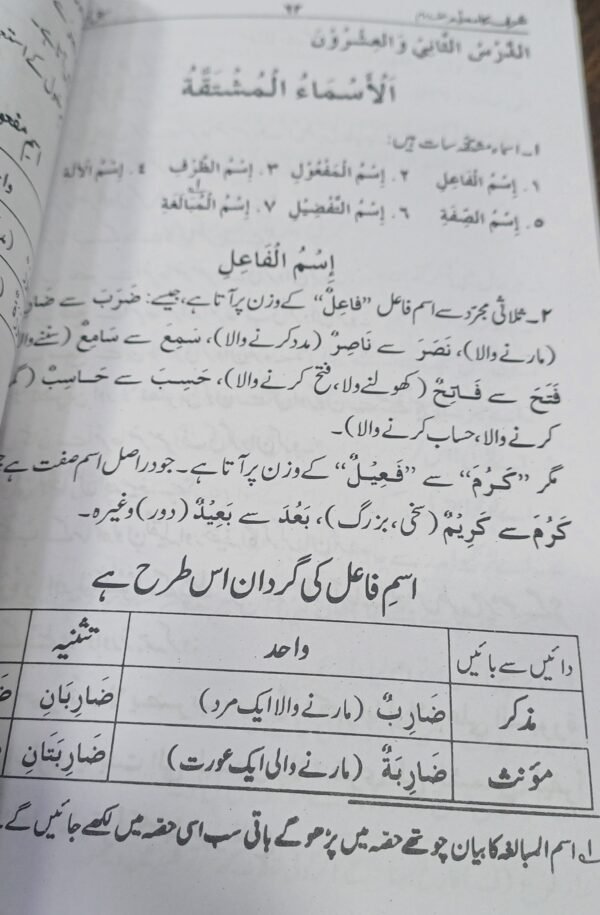 ۶۴
اَلدَّرْسُ الثَّانِيْ وَالْعِشْرُوْنَ
اَلْأَسْمَاءُ الْمُشْتَقَّةُ
۱۔ اسماء مشتقہ سات ہیں:
۱. اِسْمُ الْفَاعِلِ ۲. اِسْمُ الْمَفْعُوْلِ ۳. اِسْمُ الظَّرْفِ ۴. اِسْمُ الْآلَةِ
۵. اِسْمُ الصِّفَةِ ۶. اِسْمُ التَّفْضِيْلِ ۷. اِسْمُ الْمُبَالَغَةِ
اِسْمُ الْفَاعِلِ
۲۔ ثلاثی مجرّد سے اسم فاعل ”فَاعِلٌ“ کے وزن پر آتا ہے، جیسے: ضَرَبَ سے
(مارنے والا)، نَصَرَ سے نَاصِرٌ (مدد کرنے والا)، سَمِعَ سے سَامِعٌ (سننے والا
فَتَحَ سے فَاتِحٌ (کھولنے ولا، فتح کرنے والا)، حَسِبَ سے حَاسِبٌ
کرنے والا، حساب کرنے والا)۔
مگر ”كَرُمَ“ سے ”فَعِيْلٌ“ کے وزن پر آتا ہے۔ جو دراصل اسم صفت ہے
كَرُمَ سے كَرِيْمٌ (سخی، بزرگ)، بَعُدَ سے بَعِيْدٌ (دور) وغیرہ۔
اسمِ فاعل کی گردان اس طرح ہے
دائیں سے بائیں واحد تثنیہ
مذکر ضَارِبٌ (مارنے والا ایک مرد) ضَارِبَانِ
مؤنث ضَارِبَةٌ (مارنے والی ایک عورت) ضَارِبَتَانِ
۱ اسم المبالغہ کا بیان چوتھے حصّہ میں پڑھو گے باقی سب اسی حصّہ میں لکھے جائیں گے۔